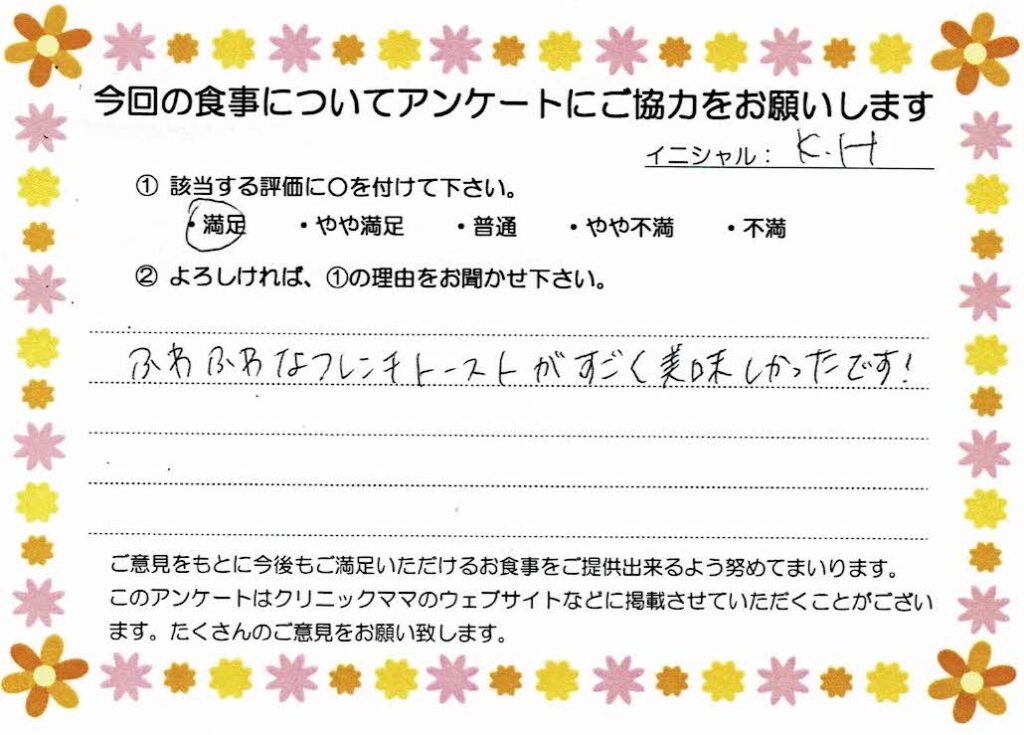 今回の食事についてアンケートにご協力をお願いします
イニシャル： K.H
① 該当する評価に〇を付けて下さい。
・満足 ・やや満足 ・普通 ・やや不満 ・不満
② よろしければ、①の理由をお聞かせ下さい。
ふわふわなフレンチトーストがすごく美味しかったです!
ご意見をもとに今後もご満足いただけるお食事をご提供出来るよう努めてまいります。
このアンケートはクリニックママのウェブサイトなどに掲載させていただくことがござい
ます。たくさんのご意見をお願い致します。